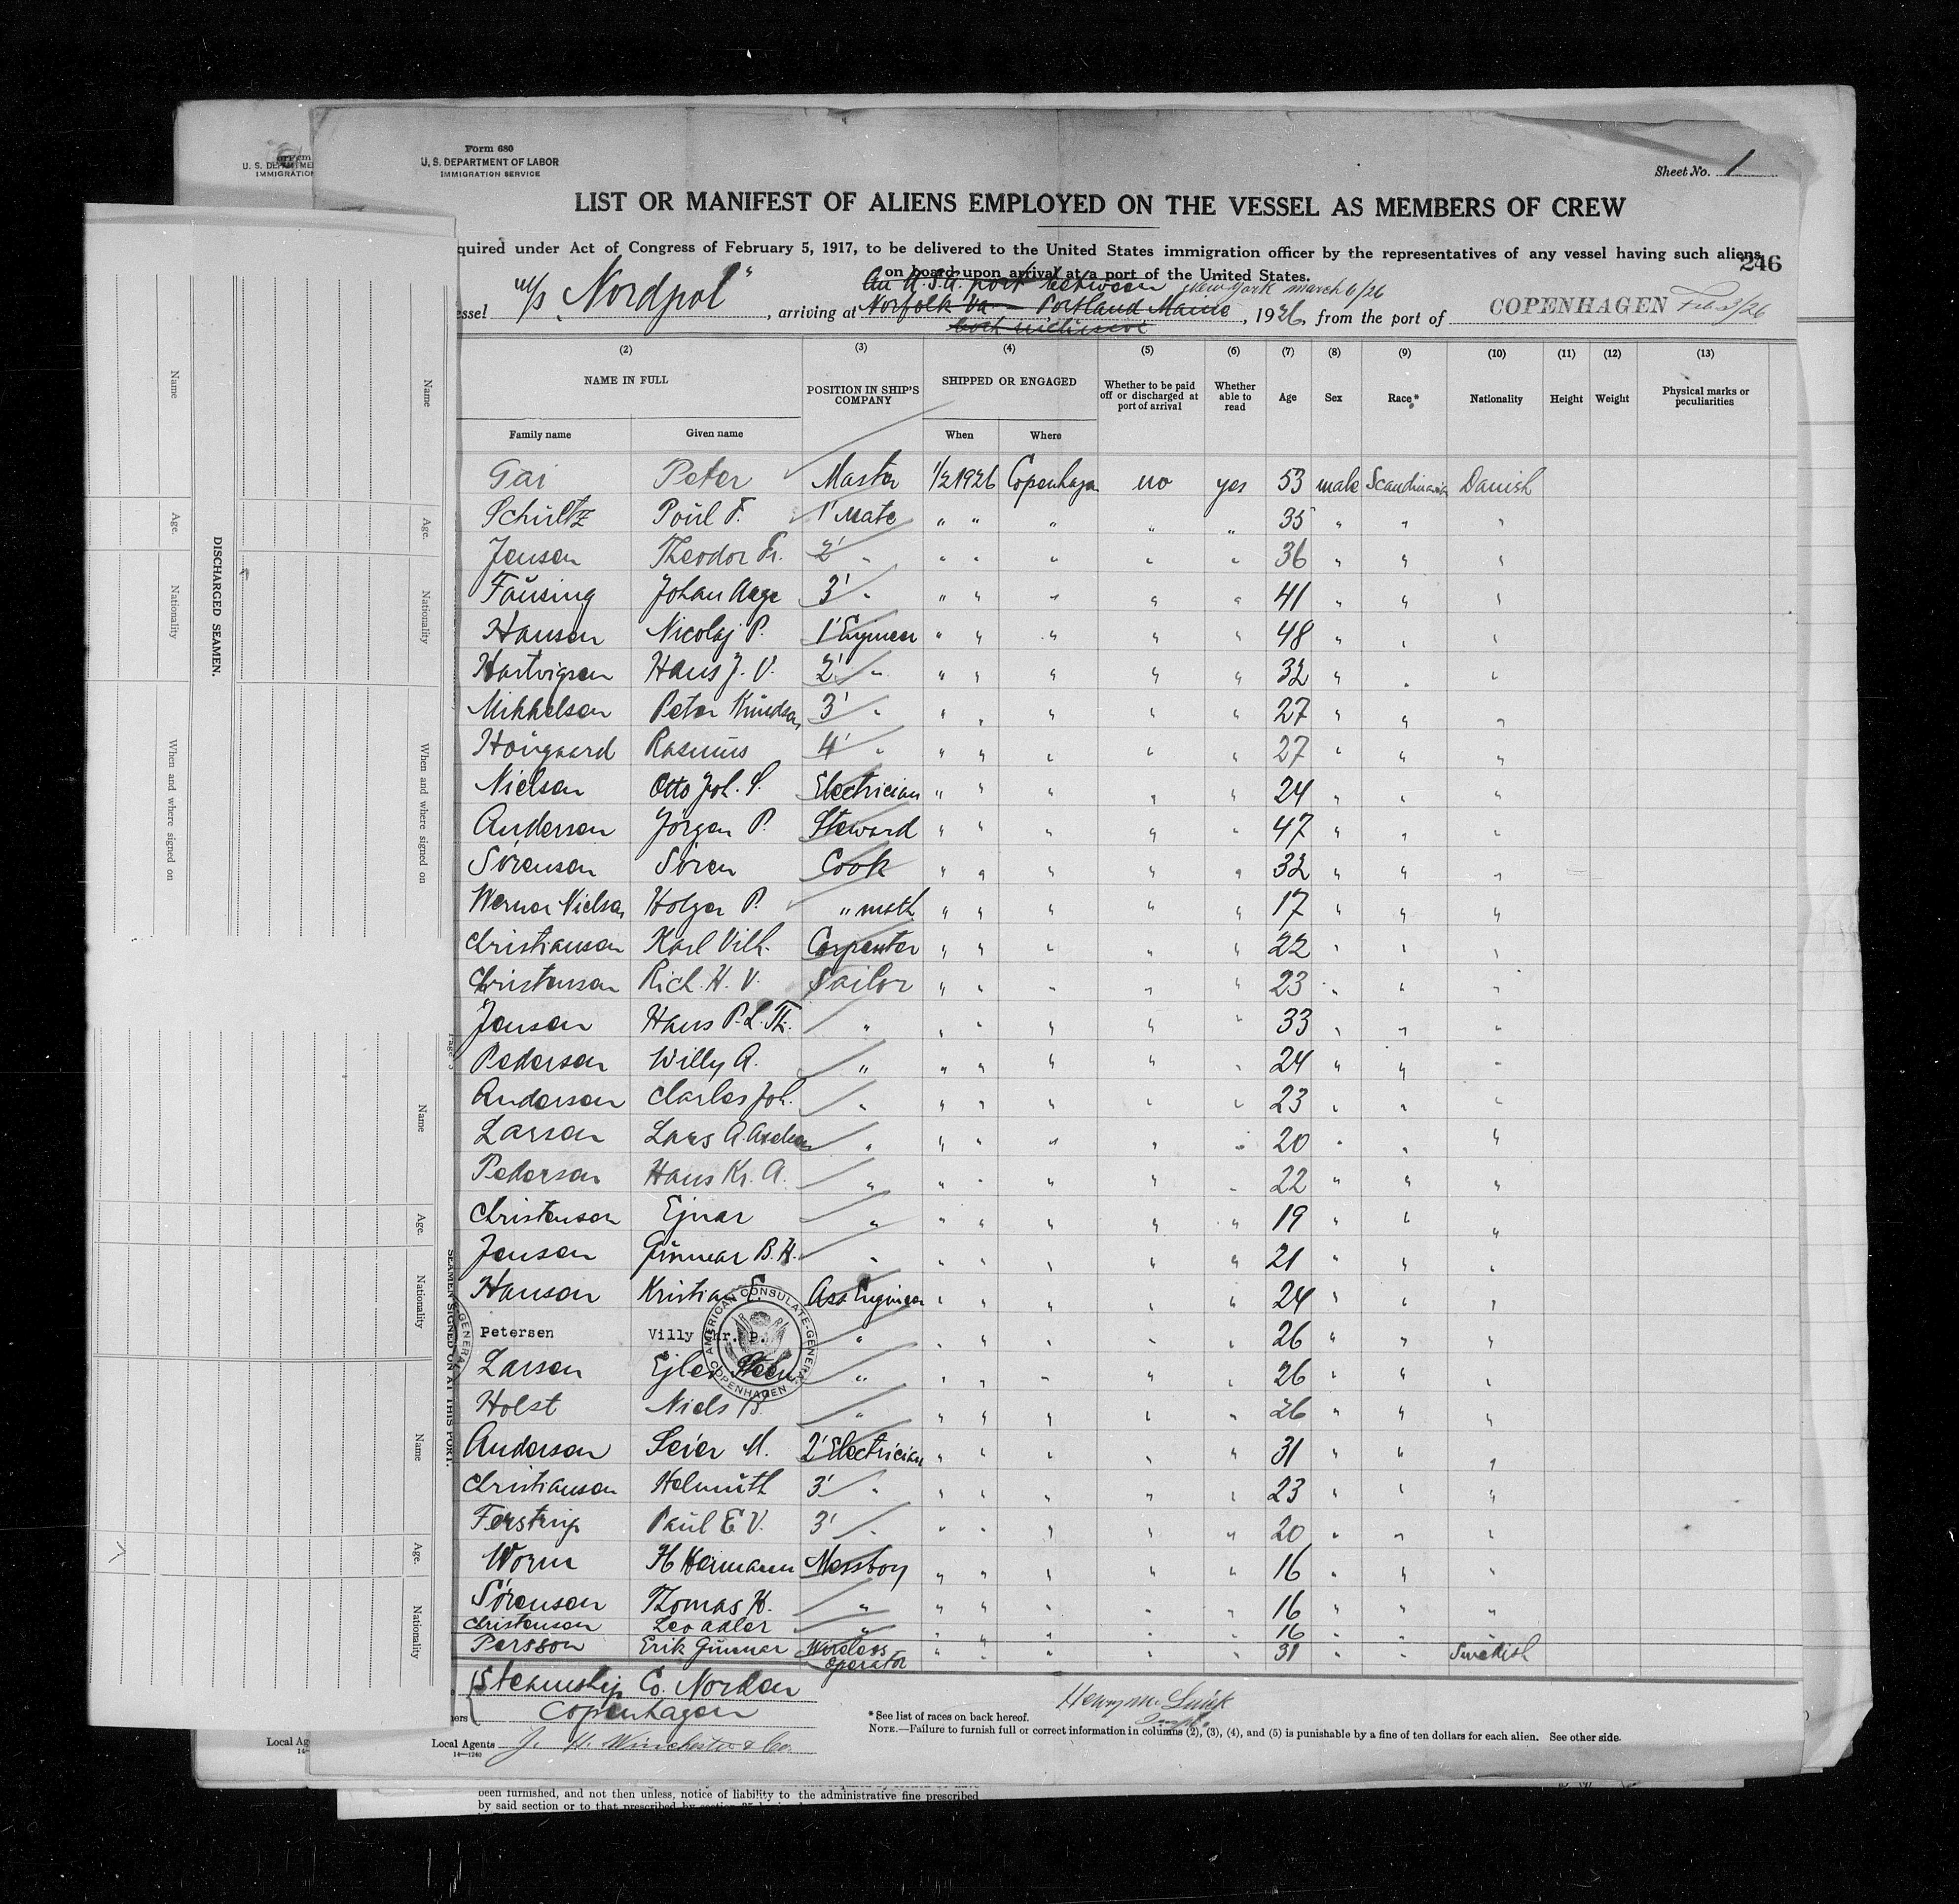 Form 680
U. S. DEPARTMENT OF LABOR
IMMIGRATION SERVICE
Sheet No. 1
LIST OR MANIFEST OF ALIENS EMPLOYED ON THE VESSEL AS MEMBERS OF CREW
quired under Act of Congress of February 5, 1917, to be delivered to the United States immigration officer by the representatives of any vessel having such aliens
on board upon arrival at a port of the United States.
246
An U.S.A. port between New York march 6/26
essel m/s "Nordpol", arriving at Norfolk Va — Portland Maine, 1926, from the port of COPENHAGEN Feb 3/26
both inclusive
(2) (3) (4) (5) (6) (7) (8) (9) (10) (11) (12) (13)
NAME IN FULL POSITION IN SHIP'S COMPANY SHIPPED OR ENGAGED Whether to be paid off or discharged at port of arrival Whether able to read Age Sex Race* Nationality Height Weight Physical marks or peculiarities
Family name Given name When Where
Gai Peter Master 1/2 1926 Copenhagen no yes 53 male Scandinavian Danish
Schültz Poül F. 1' Mate " " " " " 35 " " "
Jensen Theodor Fr. 2' " " " " " " 36 " " "
Faüsing Johan Aage 3' " " " " " " 41 " " "
Hansen Nicolaj P. 1' Engineer " " " " " 48 " " "
Hartvigsen Hans J. V. 2' " " " " " " 32 " " "
Mikkelsen Peter Knüdsen 3' " " " " " " 27 " " "
Hoügaard Rasmüs 4' " " " " " " 27 " " "
Nielsen Otto Joh. S. Electrician " " " " " 24 " " "
Andersen Jörgen P. Steward " " " " " 47 " " "
Sörensen Sören Cook " " " " " 32 " " "
Werner Nielsen Holger P. " mth " " " " " 17 " " "
Christiansen Karl Vilh. Carpenter " " " " " 22 " " "
Christensen Rich. H. V. Sailor " " " " " 23 " " "
Jensen Hans P. L. Th. " " " " " " 33 " " "
Pedersen Willy A. " " " " " " 24 " " "
Andersen Charles Joh. " " " " " " 23 " " "
Larsen Lars A. " " " " " " 20 " " "
Pedersen Hans Kr. A. " " " " " " 22 " " "
Christensen Ejnar " " " " " " 19 " " "
Jensen Günnar B. H. " " " " " " 21 " " "
Hansen Kristian E. Ass Engineer " " " " " 24 " " "
Petersen Villy Chr. P. " " " " " " 26 " " "
Larsen Ejler " " " " " " 26 " " "
Holst Niels B. " " " " " " 26 " " "
Andersen Seier M. 2' Electrician " " " " " 31 " " "
Christiansen Helmüth 3' " " " " " " 23 " " "
Paül E V. 3' " " " " " " 20 " " "
Worm H Hermann Messboy " " " " " 16 " " "
Sörensen Thomas H. " " " " " " 16 " " "
Christensen Leo Adler " " " " " " 16 " " "
Persson Erik Günnar Wireless Operator " " " " " 31 " " Swedish
AMERICAN CONSULATE-GENERAL COPENHAGEN
ners Steamship Co. Norden
Copenhagen
Local Agents J. H. Winchester & Co.
14—1240
Henry M.
*See list of races on back hereof.
NOTE.—Failure to furnish full or correct information in columns (2), (3), (4), and (5) is punishable by a fine of ten dollars for each alien. See other side.
U. S. DEPARTMEN
IMMIGRATION
DISCHARGED SEAMEN.
Name
Age.
Nationality
When and where signed on
Name
Age.
Nationality
When and where signed on
SEAMEN SIGNED ON AT THIS PORT.
Name
Age.
Nationality
Name
Age.
Nationality
GENERAL
Local Ag
14—
been furnished, and not then unless, notice of liability to the administrative fine prescribed
by said section or to that prescribed by section